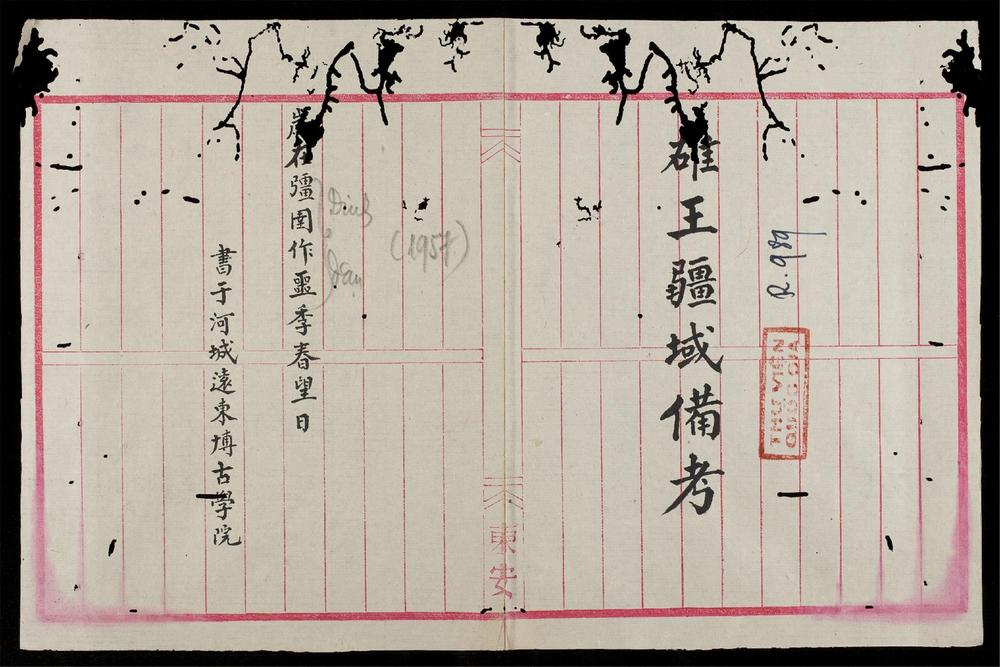 R.989
THƯ VIỆN
QUỐC GIA
雄王疆域備考
東安
(1957)
Đinh
Dậu
歲在疆圉作噩季春望日
書于河城遠東博古學院